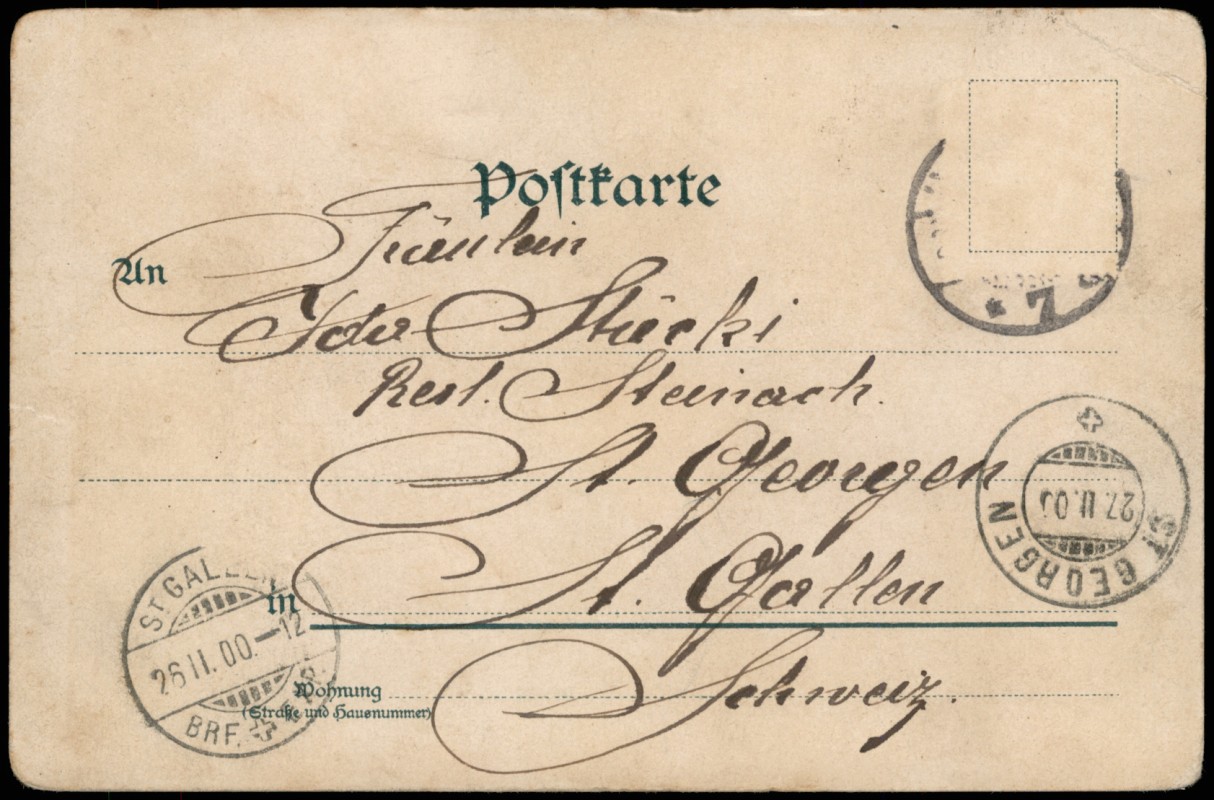 Postkarte
An
Fräulein
Ida Stücki
Rest. Steinach.
St. Georgen
in St. Gallen
Schweiz.
Wohnung
(Straße und Hausnummer)
* 7
ST. GEORGEN
27.II.00
ST GALLEN
26 II.00–12
BRF.